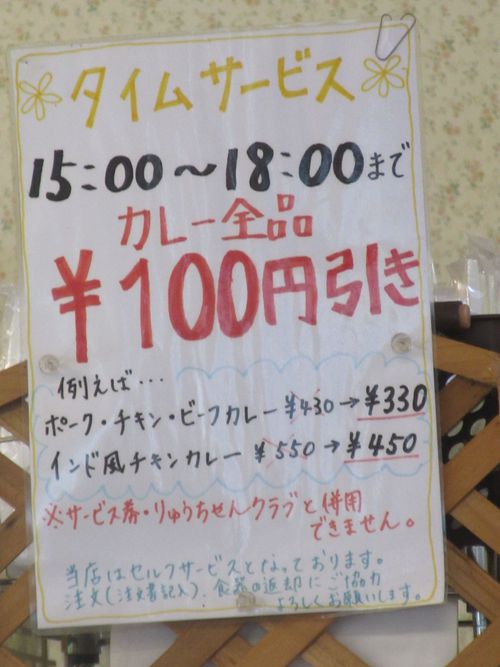 タイムサービス
15:00～18:00まで
カレー全品
¥100円引き
例えば・・・
ポーク・チキン・ビーフカレー ¥430→¥330
インド風チキンカレー ¥550→¥450
※サービス券・りゅうちゃんクラブと併用
できません。
当店はセルフサービスとなっております。
注文(注文書記入)、食器の返却にご協力
よろしくお願いします。